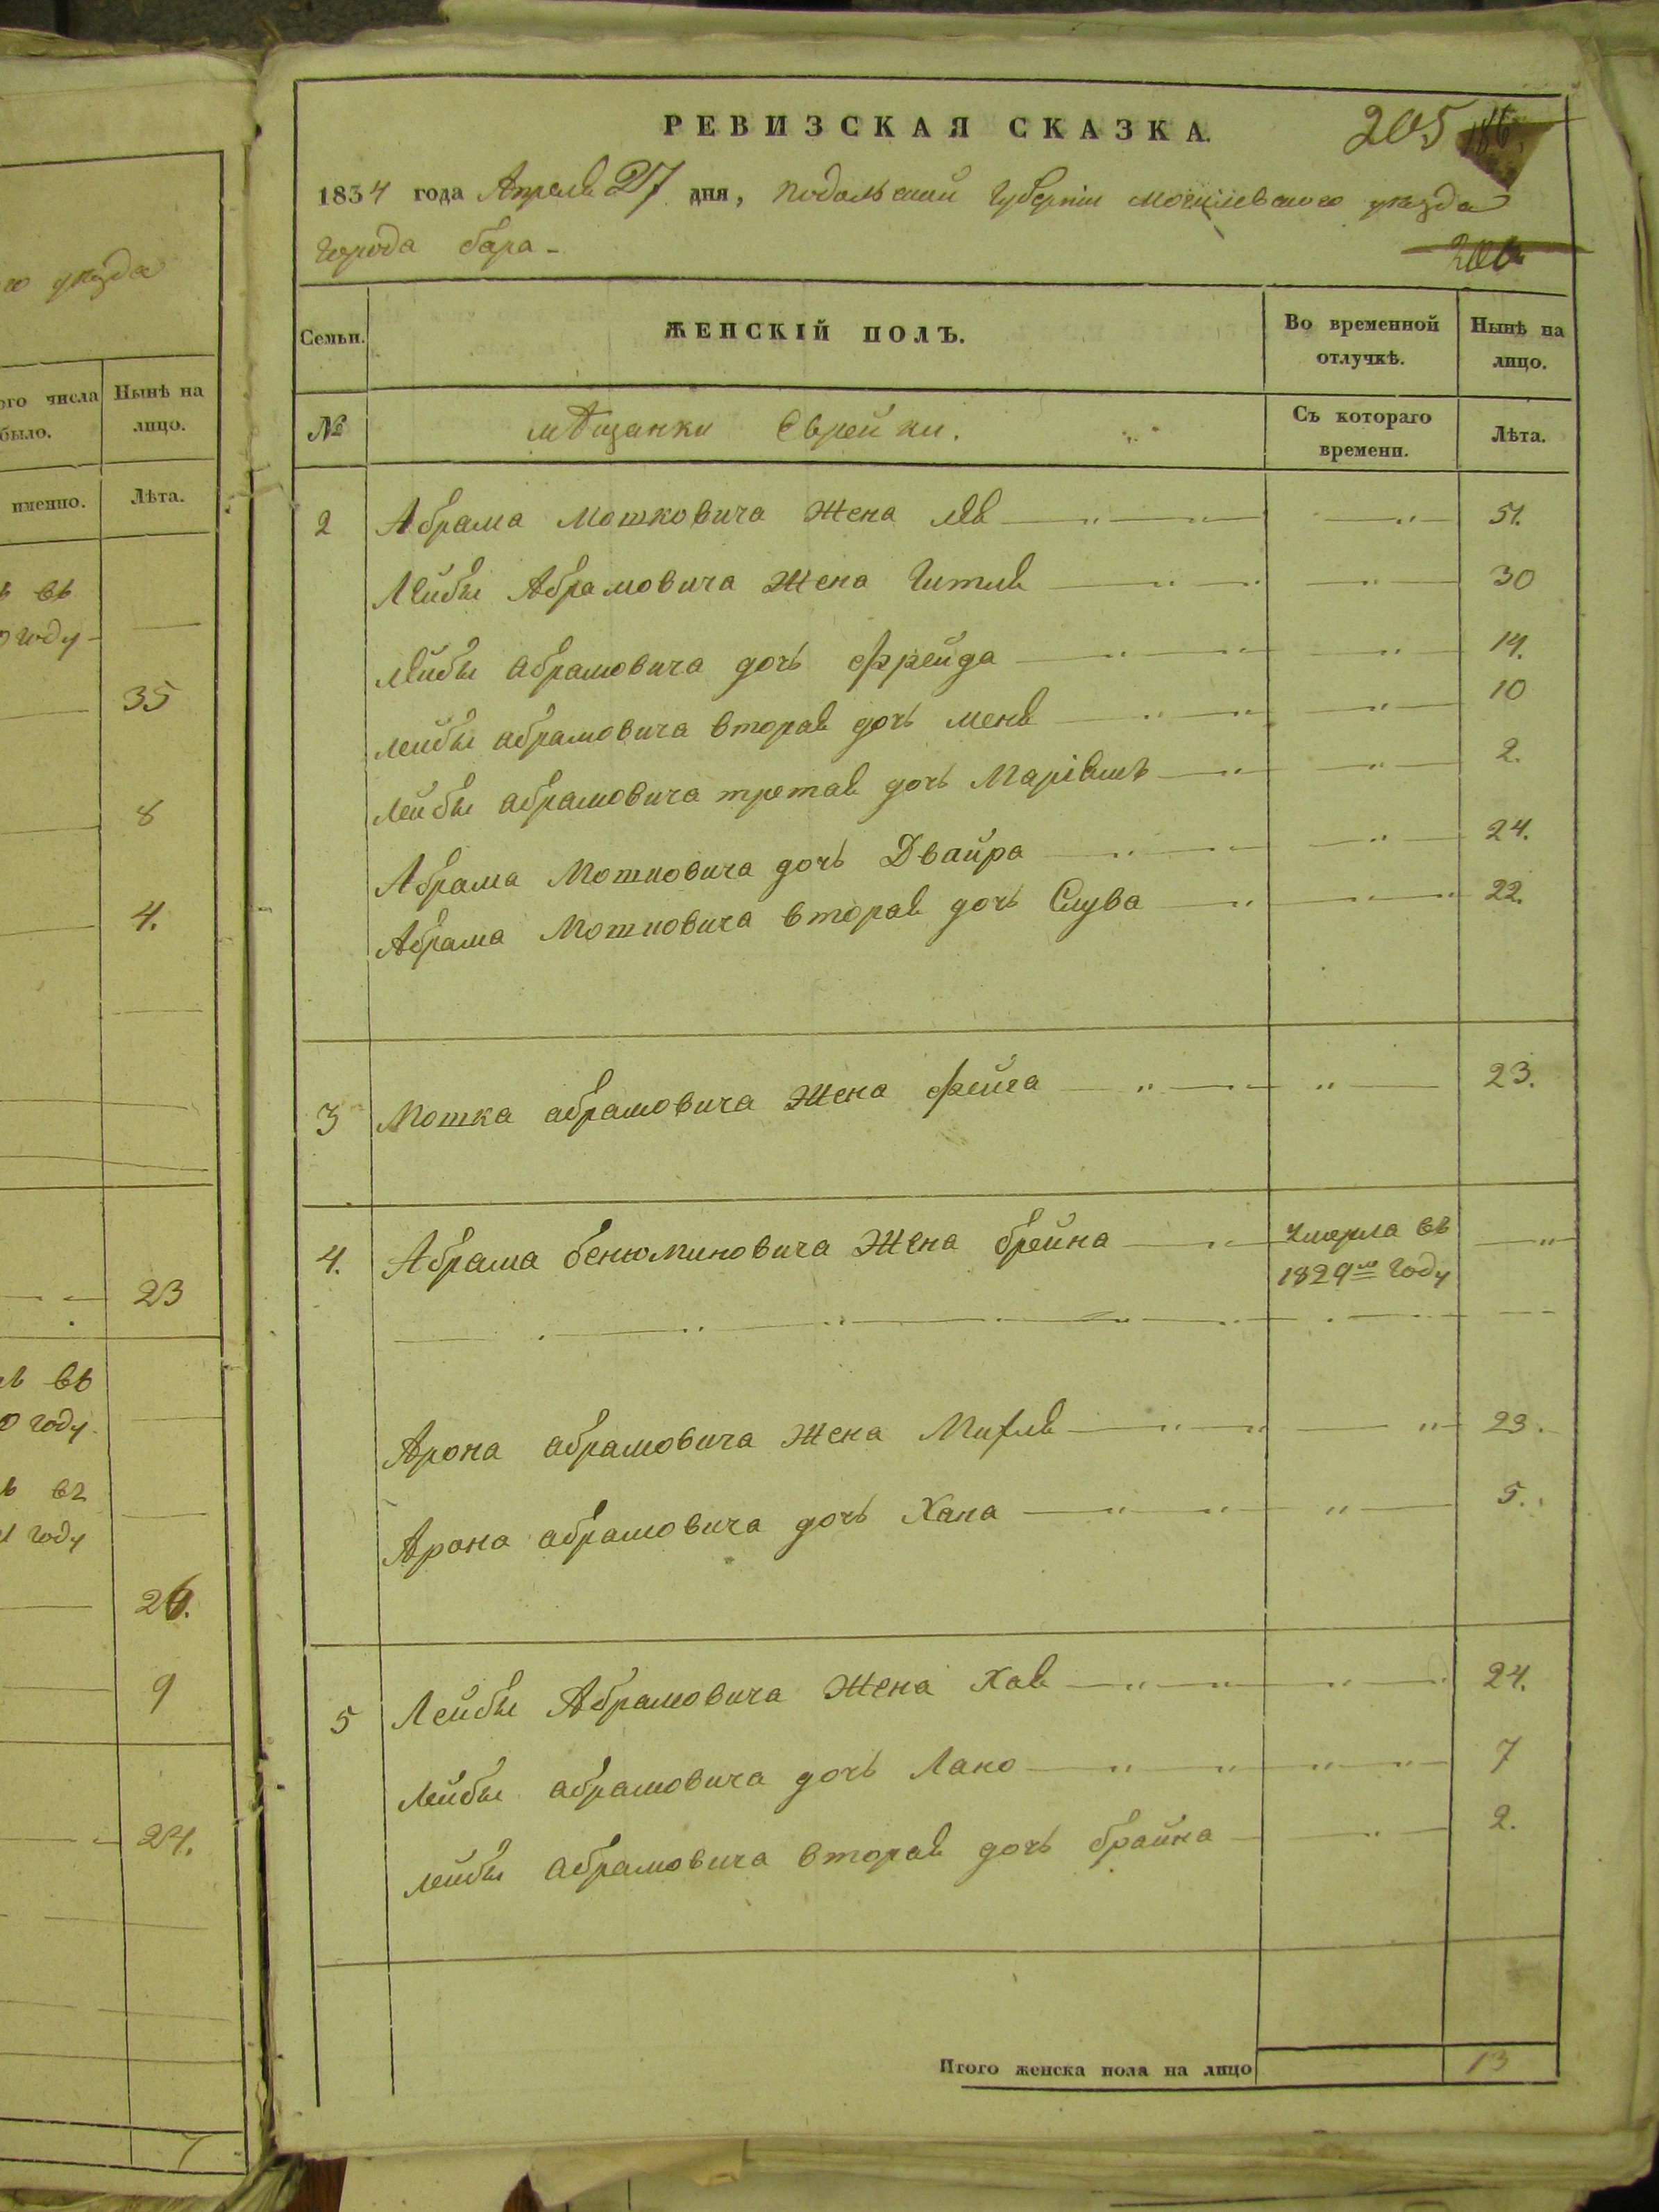 го уѣзда
ого числа Нынѣ на
было. лицо.
именно. Лѣта.
въ
году
35
8
4.
23
въ
году
въ
году
26.
9
24.
7
РЕВИЗСКАЯ СКАЗКА.
205
1834 года Апреля 27 дня, Подольской Губерніи Могилевского уѣзда
города бара
Семьи. ЖЕНСКІЙ ПОЛЪ. Во временной отлучкѣ. Нынѣ на лицо.
№ мѣщанки Еврейки. Съ котораго времени. Лѣта.
2 Абрама Мошковича Жена Лея 51.
Лейбы Абрамовича Жена Гитля 30
Лейбы абрамовича дочь Фрейда 14.
Лейбы абрамовича вторая дочь Меня 10
Лейбы абрамовича третая дочь Маріямъ 2.
Абрама Мошковича дочь Двайра 24.
Абрама Мошковича вторая дочь Слува 22.
3 Мошка абрамовича Жена Фейга 23.
4. Абрама бенюминовича Жена брейна Умерла въ
1829мъ году
Арона абрамовича Жена 23.
Арона абрамовича дочь Хана 5.
5 Лейбы Абрамовича Жена Хая 24.
Лейбы абрамовича дочь 7
Лейбы абрамовича вторая дочь брайна 2.
Итого женска пола на лицо 13